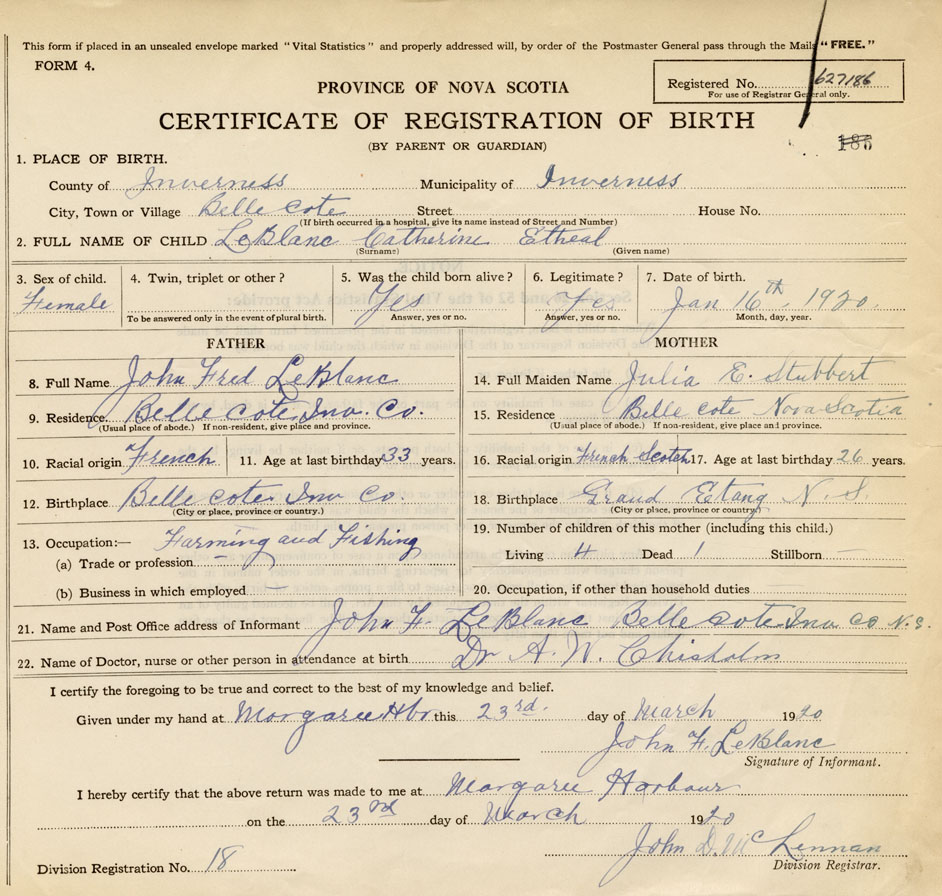 This form if placed in an unsealed envelope marked "Vital Statistics" and properly addressed will, by order of the Postmaster General pass through the Mails "FREE."
FORM 4.
Registered No. 627186
For use of Registrar General only.
PROVINCE OF NOVA SCOTIA
CERTIFICATE OF REGISTRATION OF BIRTH
186
(BY PARENT OR GUARDIAN)
1. PLACE OF BIRTH.
County of Inverness Municipality of Inverness
City, Town or Village Belle cote Street House No.
(If birth occurred in a hospital, give its name instead of Street and Number)
2. FULL NAME OF CHILD LeBlanc Catherine Etheal
(Surname) (Given name)
3. Sex of child. 4. Twin, triplet or other? 5. Was the child born alive? 6. Legitimate? 7. Date of birth.
Female Yes Yes Jan 16th, 1920.
To be answered only in the event of plural birth. Answer, yes or no. Answer, yes or no. Month, day, year.
FATHER MOTHER
8. Full Name John Fred LeBlanc 14. Full Maiden Name Julia E. Stubbert
9. Residence. Belle cote Inv. Co. 15. Residence Belle cote Nova Scotia
(Usual place of abode.) If non-resident, give place and province. (Usual place of abode.) If non-resident, give place and province.
10. Racial origin French 11. Age at last birthday 33 years. 16. Racial origin French Scotch 17. Age at last birthday 26 years.
12. Birthplace Belle cote Inv Co. 18. Birthplace Grand Etang N. S.
(City or place, province or country.) (City or place, province or country)
13. Occupation:— Farming and Fishing 19. Number of children of this mother (including this child.)
(a) Trade or profession Living 4 Dead 1 Stillborn —
(b) Business in which employed — 20. Occupation, if other than household duties
21. Name and Post Office address of Informant John F. LeBlanc Belle cote Inv Co N.S.
22. Name of Doctor, nurse or other person in attendance at birth Dr A. W. Chisholm
I certify the foregoing to be true and correct to the best of my knowledge and belief.
Given under my hand at Margaree Hbr this 23rd. day of March 1920
John F. LeBlanc
Signature of Informant.
I hereby certify that the above return was made to me at Margaree Harbour
on the 23rd day of March 1920
John D. McLennan
Division Registration No. 18 Division Registrar.